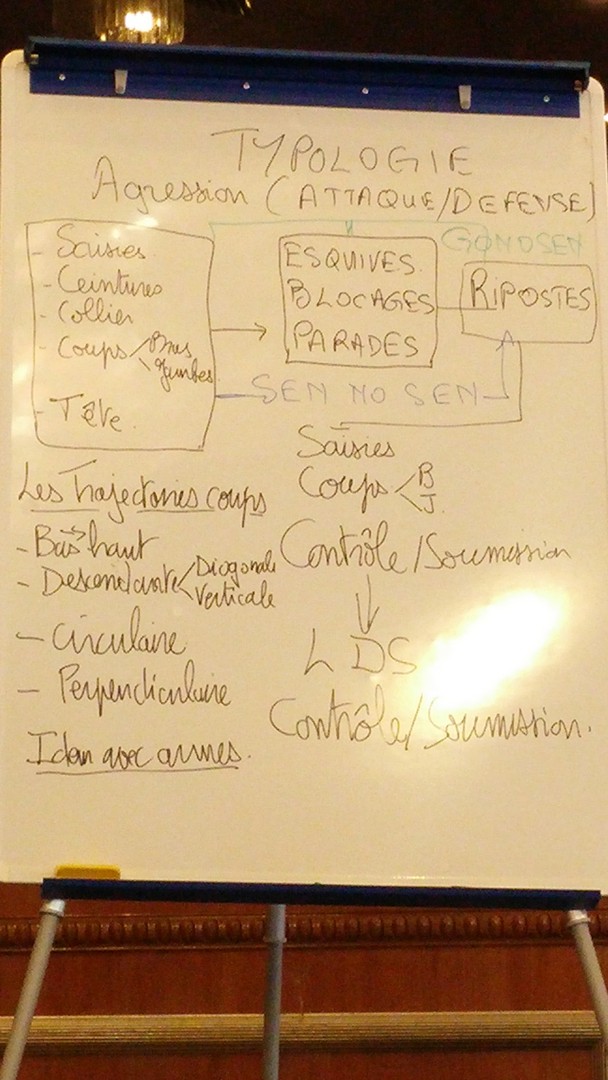 TYPOLOGIE
Agression (ATTAQUE/DEFENSE)
- Saisies
- Ceintures
- Collier
- Coups Bras
Jambes
- Tête
ESQUIVES
BLOCAGES
PARADES
GONOSEN
RIPOSTES
SEN NO SEN
Saisies
Coups B
J
Contrôle/Soumission
LDS
Contrôle/Soumission.
Les Trajectoires coups
- Bas → haut
- Descendante Diagonale
Verticale
- Circulaire
- Perpendiculaire
Idem avec armes.